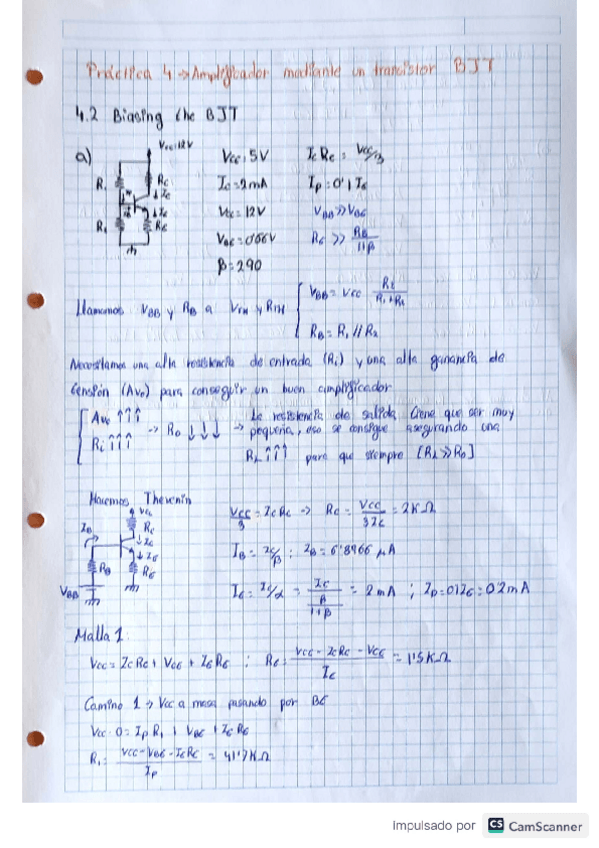 Práctica 4 → Amplificador mediante un transistor BJT
4.2 Biasing the BJT
a)
Vcc=12V
R₁
Rc
Ic
IE
R₁
RE
Vcc: 5V
Ic=2mA
Vcc=12V
VBE=0'66V
β=290
IcRc = Vcc/3
Ip=0'1 IE
VBB>>VBE
RE >> RB/(1+β)
Llamamos VBB y RB a VTH y RTH
VBB = Vcc R2/(R1+R2)
RB = R1 // R2
Necesitamos una alta resistencia de entrada (Ri) y una alta ganancia de
tensión (Avo) para conseguir un buen amplificador
Avo ↑↑↑
Ri ↑↑↑
→ Ro ↓↓↓ →
La resistencia de salida tiene que ser muy
pequeña, eso se consigue asegurando una
RL ↑↑↑ para que siempre [RL>>Ro]
Hacemos Thevenin
Vcc
IB
Rc
Ic
IE
RB
RE
VBB
Vcc/3 = IcRc → Rc = Vcc/3Ic = 2KΩ
IB = Ic/β ; IB = 6'8966 μA
IE = Ic/α = Ic/(β/(1+β)) = 2mA ; Ip=0'1IE=0'2mA
Malla 1:
Vcc = IcRc + VCE + IERE ; RE = (Vcc - IcRc - VCE)/IE = 1'5KΩ
Camino 1 → Vcc a masa pasando por BE
Vcc-0 = IpR1 + VBE + IERE
R1 = (Vcc-VBE-IERE)/Ip = 41'7KΩ
Impulsado por CS CamScanner